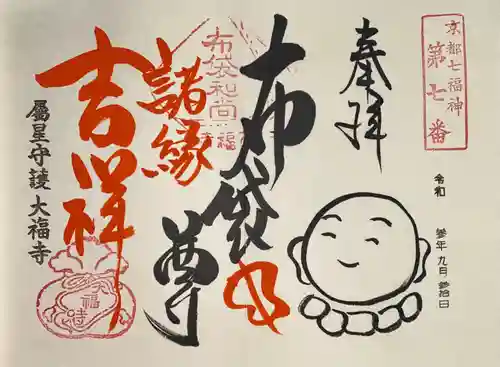 京都七福神
第七番
奉拝
令和
参年九月参拾日
布袋尊
布袋和尚
諸縁
吉祥
属星守護 大福寺